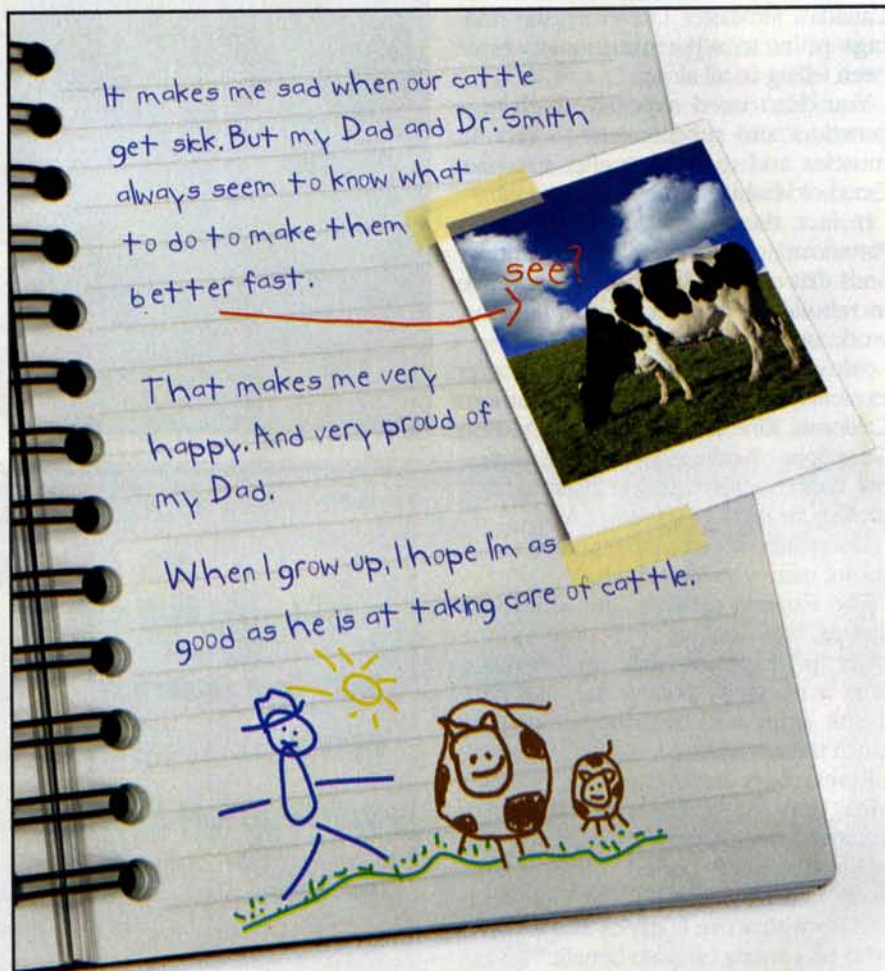 It makes me sad when our cattle
get sick. But my Dad and Dr. Smith
always seem to know what
to do to make them
better fast.
see?
That makes me very
happy. And very proud of
my Dad.
When I grow up, I hope I'm as
good as he is at taking care of cattle.